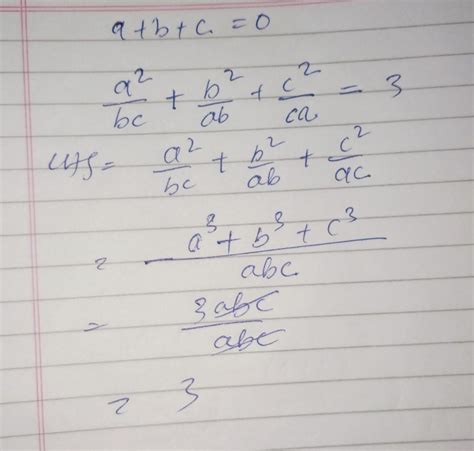 a+b+c = 0
a²/bc + b²/ab + c²/ca = 3
LHS = a²/bc + b²/ab + c²/ac
= a³ + b³ + c³/abc
= 3abc/abc
= 3